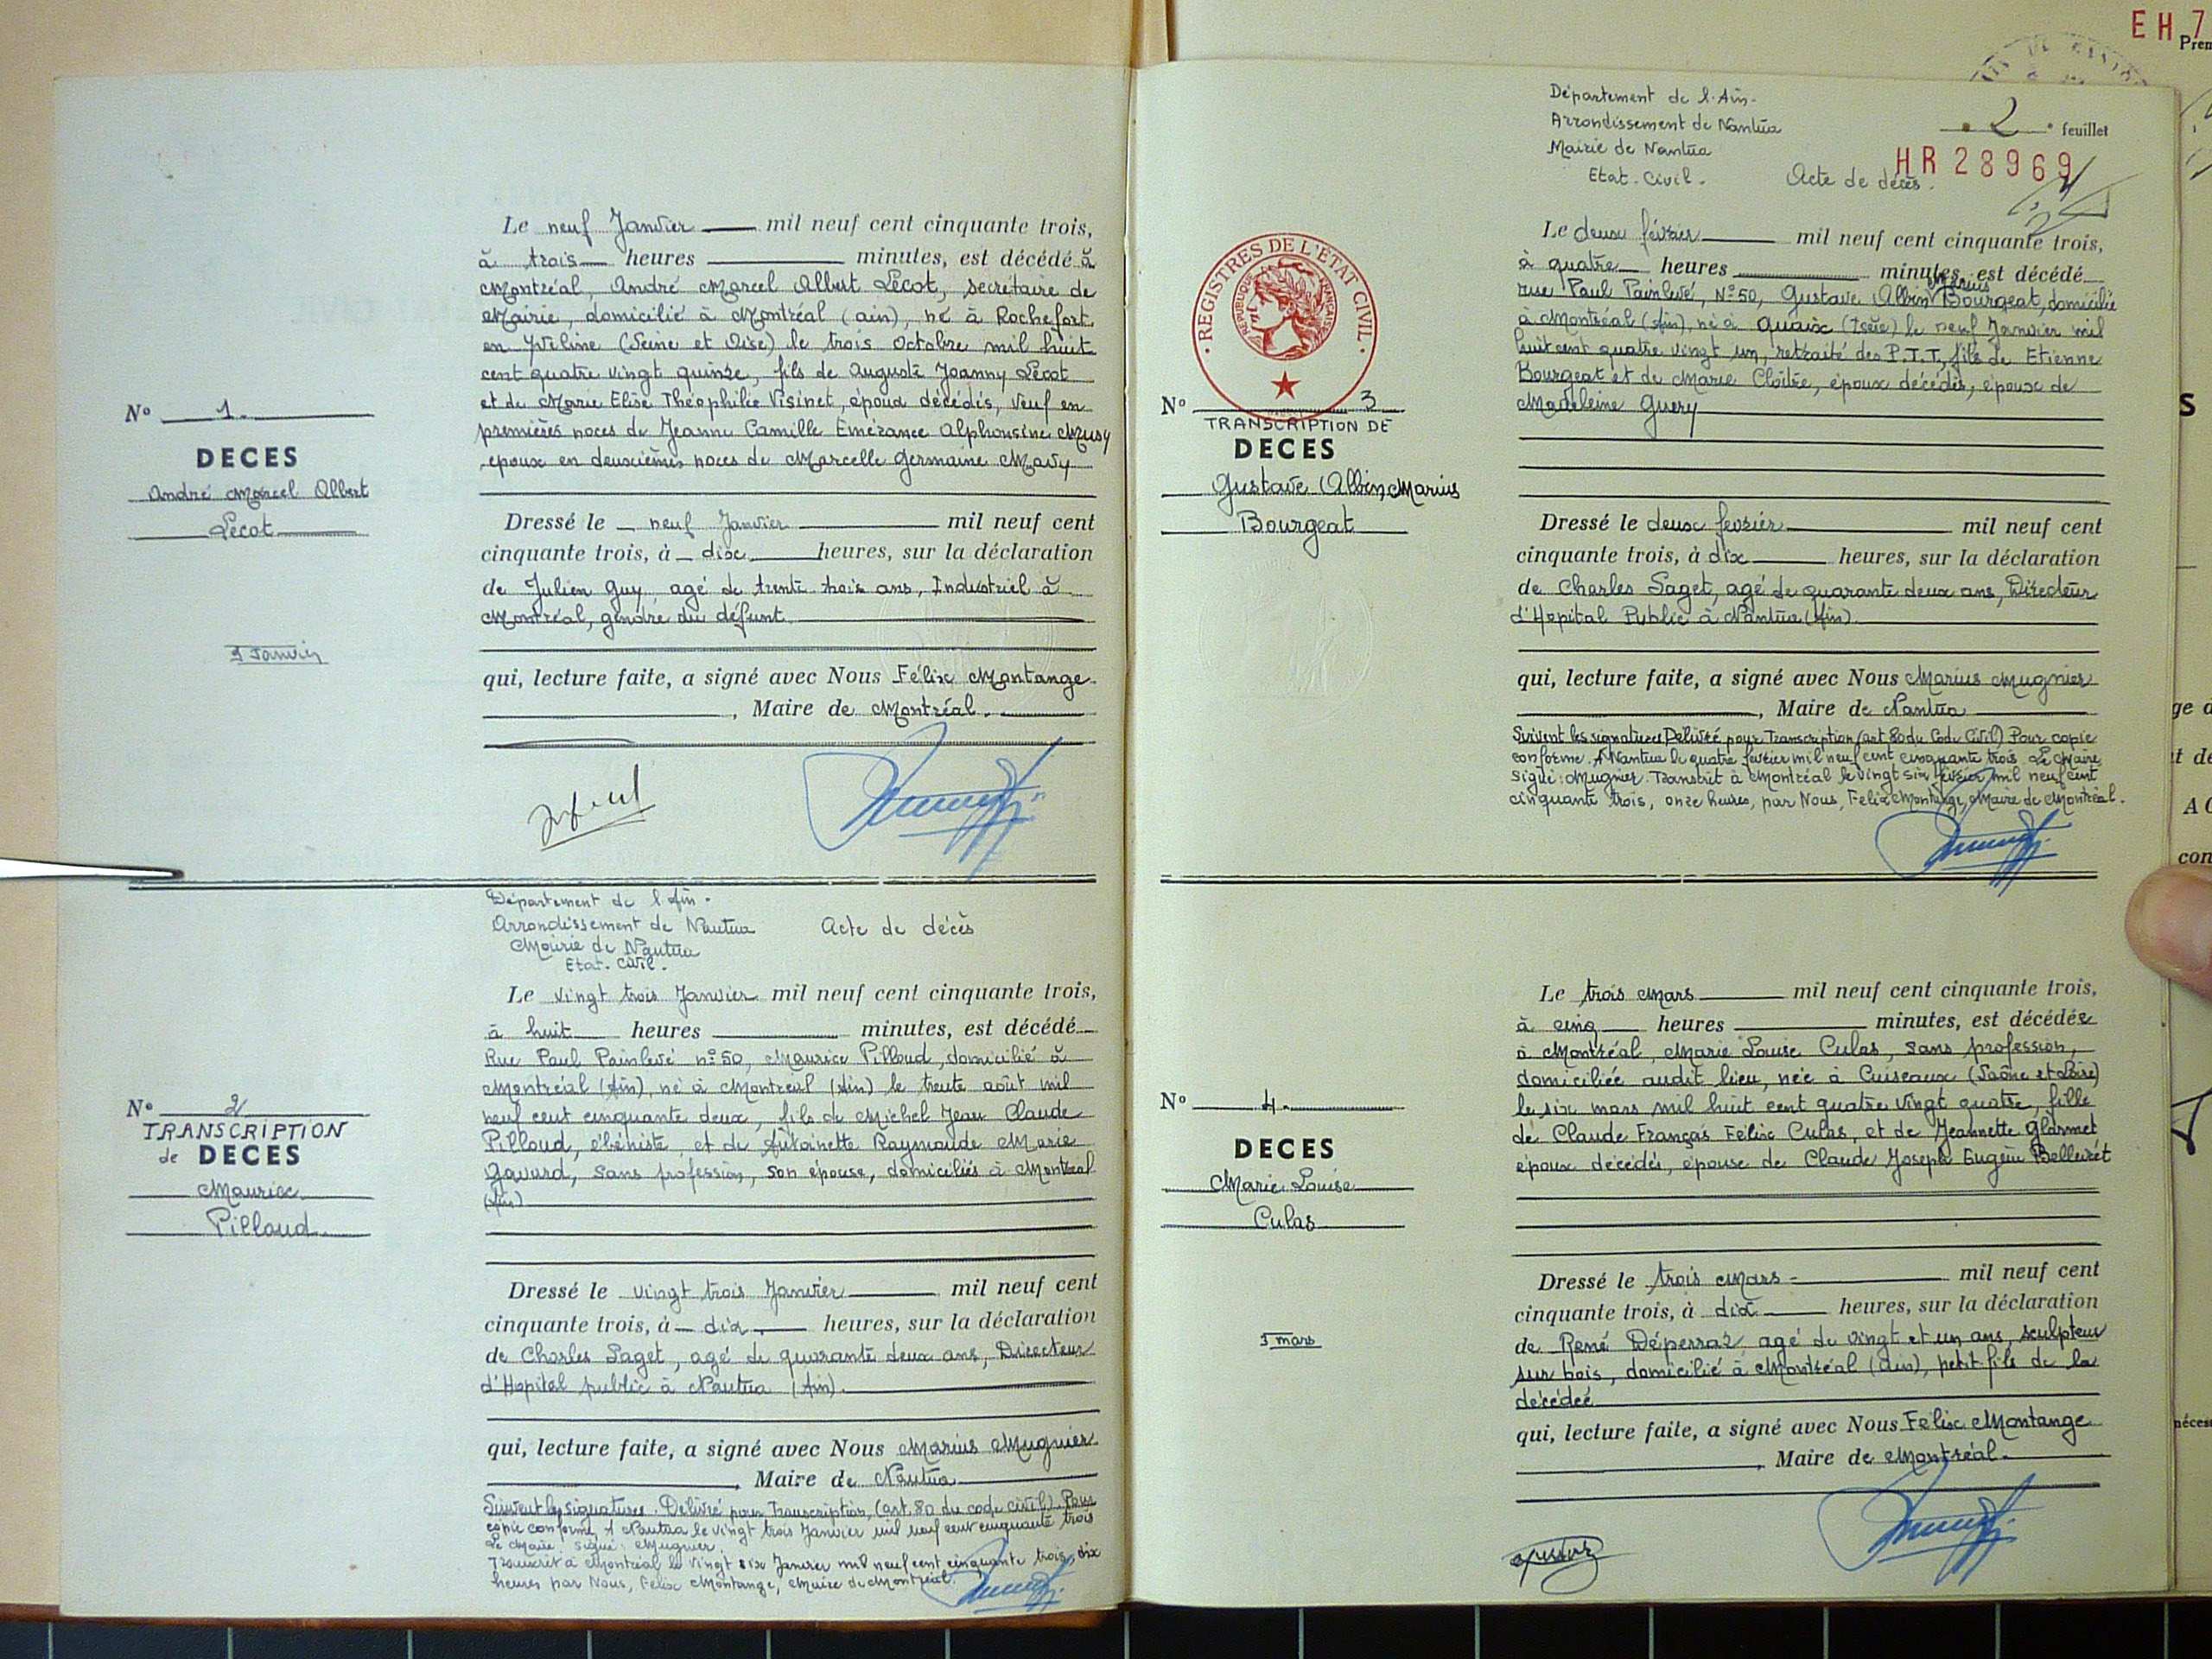 Le neuf Janvier mil neuf cent cinquante trois,
à trois heures minutes, est décédé à
Montréal, André Marcel Albert Lécot, secrétaire de
Mairie, domicilié à Montréal (ain), né à Rochefort
en Yveline (Seine et Oise) le trois Octobre mil huit
cent quatre vingt quinze, fils de Auguste Joanny Lécot
et de Marie Elise Théophilie Visinet, époux décédés, Veuf en
premières noces de Jeanne Camille Emérance Alphonsine Musy
époux en deuxièmes noces de Marcelle Germaine Mavy
Nº 1.
DECES
André Marcel Albert
Lécot
9 Janvier
Dressé le neuf Janvier mil neuf cent
cinquante trois, à dix heures, sur la déclaration
de Julien Guy, agé de trente trois ans, Industriel à
Montréal, gendre du défunt.
qui, lecture faite, a signé avec Nous Félix Montange
, Maire de Montréal.
Département de l'Ain -
Arrondissement de Nantua Acte de décès
Mairie de Nantua
Etat. Civil.
Le vingt trois Janvier mil neuf cent cinquante trois,
à huit heures minutes, est décédé
Rue Paul Painlevé nº 50, Maurice Pilloud, domicilié à
Montréal (Ain), né à Montréal (Ain) le trente août mil
neuf cent cinquante deux, fils de Michel Jean Claude
Pilloud, ébéniste, et de Antoinette Raymonde Marie
Gavard, sans profession, son épouse, domiciliés à Montréal
(Ain)
Nº 2
TRANSCRIPTION
de DECES
Maurice
Pilloud
Dressé le vingt trois Janvier mil neuf cent
cinquante trois, à dix heures, sur la déclaration
de Charles Saget, agé de quarante deux ans, Directeur
d'Hopital public à Nantua (Ain).
qui, lecture faite, a signé avec Nous Marius Mugnier
, Maire de Nantua
Suivent les signatures. Délivré pour Transcription, (art. 80 du code civil). Pour
copie conforme, A Nantua le vingt trois Janvier mil neuf cent cinquante trois
Le Maire, signé: Mugnier.
Transcrit à Montréal le vingt six Janvier mil neuf cent cinquante trois, dix
heures par Nous, Félix Montange, Maire de Montréal.
EH 7
Prem
Département de l'Ain-
Arrondissement de Nantua
Mairie de Nantua
Etat. Civil. Acte de décès.
2 e feuillet
HR 28969
REGISTRES DE L'ETAT CIVIL
REPUBLIQUE FRANÇAISE
Le deux février mil neuf cent cinquante trois,
à quatre heures minutes, est décédé
Marius
rue Paul Painlevé, Nº 50, Gustave Albin Bourgeat, domicilié
à Montréal (Ain), né à Quaix (Isère) le neuf Janvier mil
huit cent quatre vingt un, retraité des P.T.T, fils de Etienne
Bourgeat et de Marie Cloître, époux décédés, époux de
Madeleine Guery
Nº 3
TRANSCRIPTION DE
DECES
Gustave Albin Marius
Bourgeat
Dressé le deux fevrier mil neuf cent
cinquante trois, à dix heures, sur la déclaration
de Charles Saget, agé de quarante deux ans, Directeur
d'Hopital Public à Nantua (Ain)
qui, lecture faite, a signé avec Nous Marius Mugnier
, Maire de Nantua
Suivent les signatures Délivré pour Transcription (art 80 du Code Civil) Pour copie
conforme. A Nantua le quatre fevrier mil neuf cent cinquante trois Le Maire
signé: Mugnier. Transcrit à Montréal le vingt six février mil neuf cent
cinquante trois, onze heures, par Nous, Felix Montange, Maire de Montréal.
Le trois Mars mil neuf cent cinquante trois,
à cinq heures minutes, est décédée
à Montréal, Marie Louise Culas, sans profession,
domiciliée audit lieu, née à Cuiseaux (Saône et Loire)
le six mars mil huit cent quatre vingt quatre, fille
de Claude Français Félix Culas, et de Jeannette Glarmet
époux décédés, épouse de Claude Joseph Eugène Belleurét
Nº 4.
DECES
Marie Louise
Culas
3 mars
Dressé le trois Mars - mil neuf cent
cinquante trois, à dix heures, sur la déclaration
de René Déperraz, agé de vingt et un ans, sculpteur
sur bois, domicilié à Montréal (ain), petit fils de la
décédée
qui, lecture faite, a signé avec Nous Felix Montange
, Maire de Montréal.